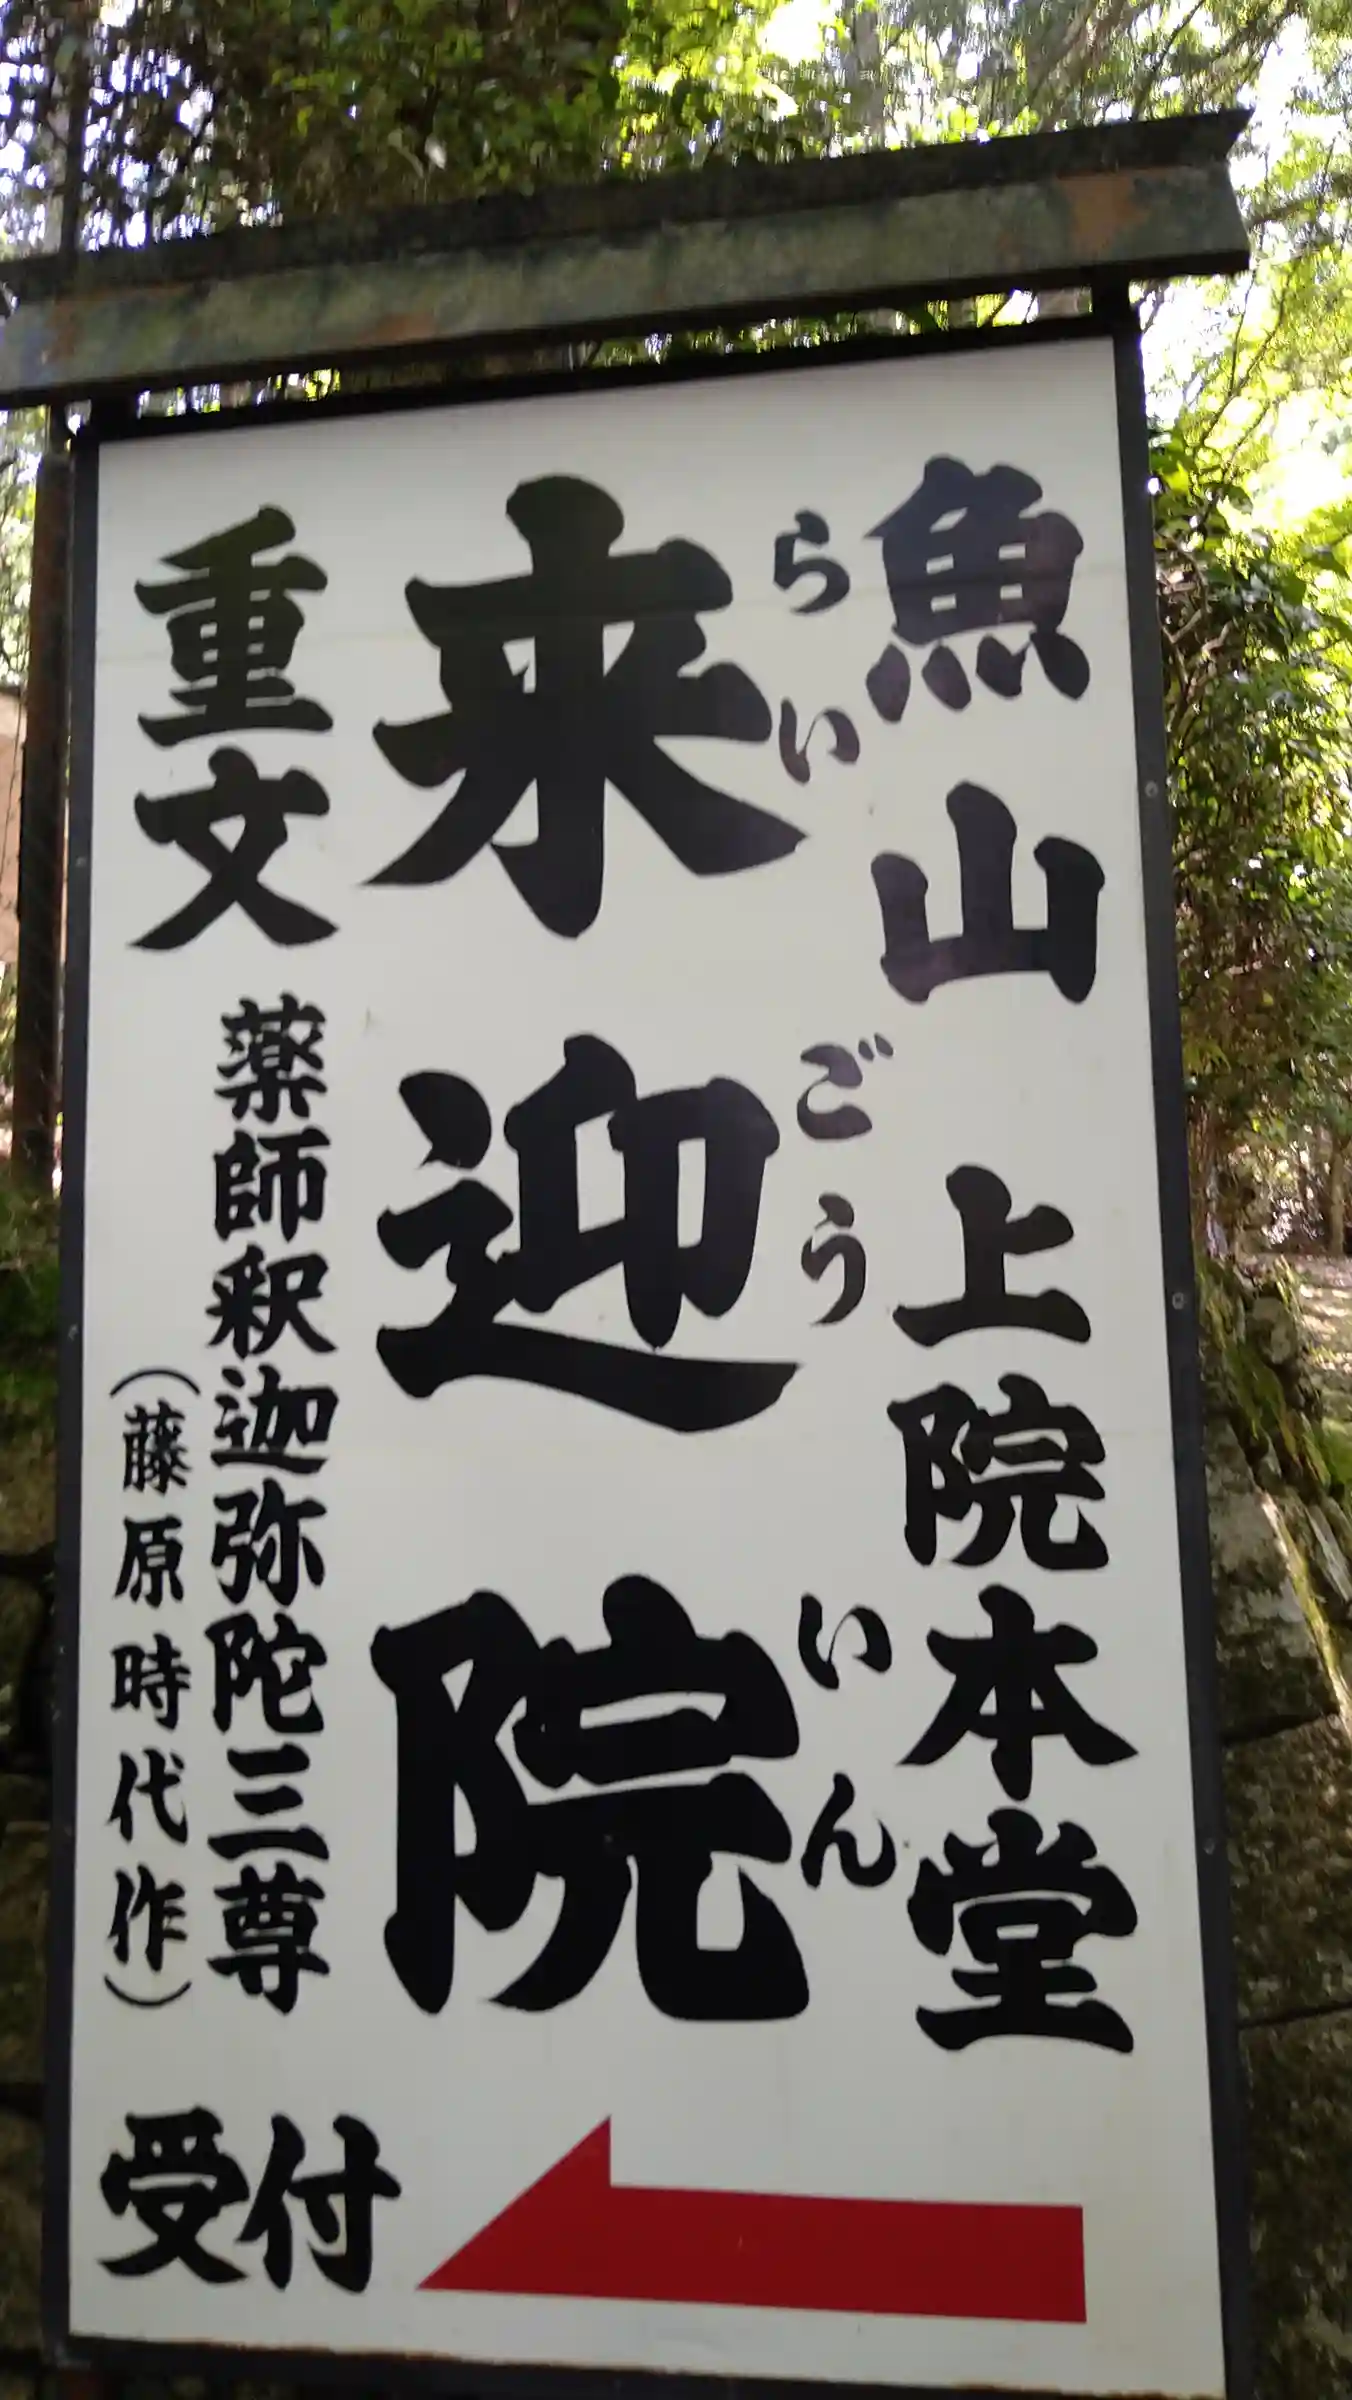 魚山 上院本堂
らいごういん
来迎院
重文 薬師釈迦弥陀三尊
(藤原時代作)
受付